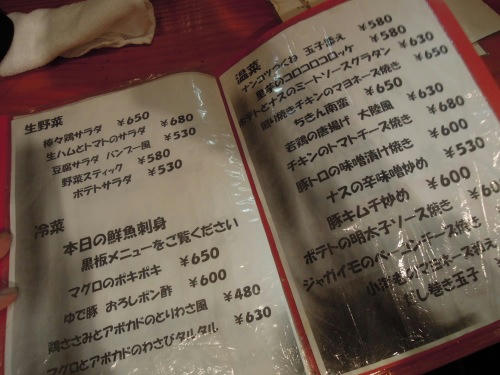 生野菜
棒々鶏サラダ ¥650
生ハムとトマトのサラダ ¥680
豆腐サラダ バンブー風 ¥530
野菜スティック ¥580
ポテトサラダ ¥530
冷菜
本日の鮮魚刺身
黒板メニューをご覧ください
マグロのポキポキ ¥650
ゆで豚 おろしポン酢 ¥600
鶏ささみとアボカドのとりわさ風 ¥480
マグロとアボカドのわさびタルタル ¥630
温菜
ナンコツつくね 玉子添え ¥580
里芋のコロコロコロッケ ¥580
ポテトとナスのミートソースグラタン ¥630
鶏のマヨネーズ焼き ¥650
ちきん南蛮 ¥650
若鶏の唐揚げ 大陸風 ¥630
チキンのトマトチーズ焼き ¥680
豚トロの味噌漬け焼き ¥600
ナスの辛味噌炒め ¥530
豚キムチ炒め ¥600
ポテトの明太子ソース焼き ¥
ジャガイモのベーコン 焼き
だし巻き玉子